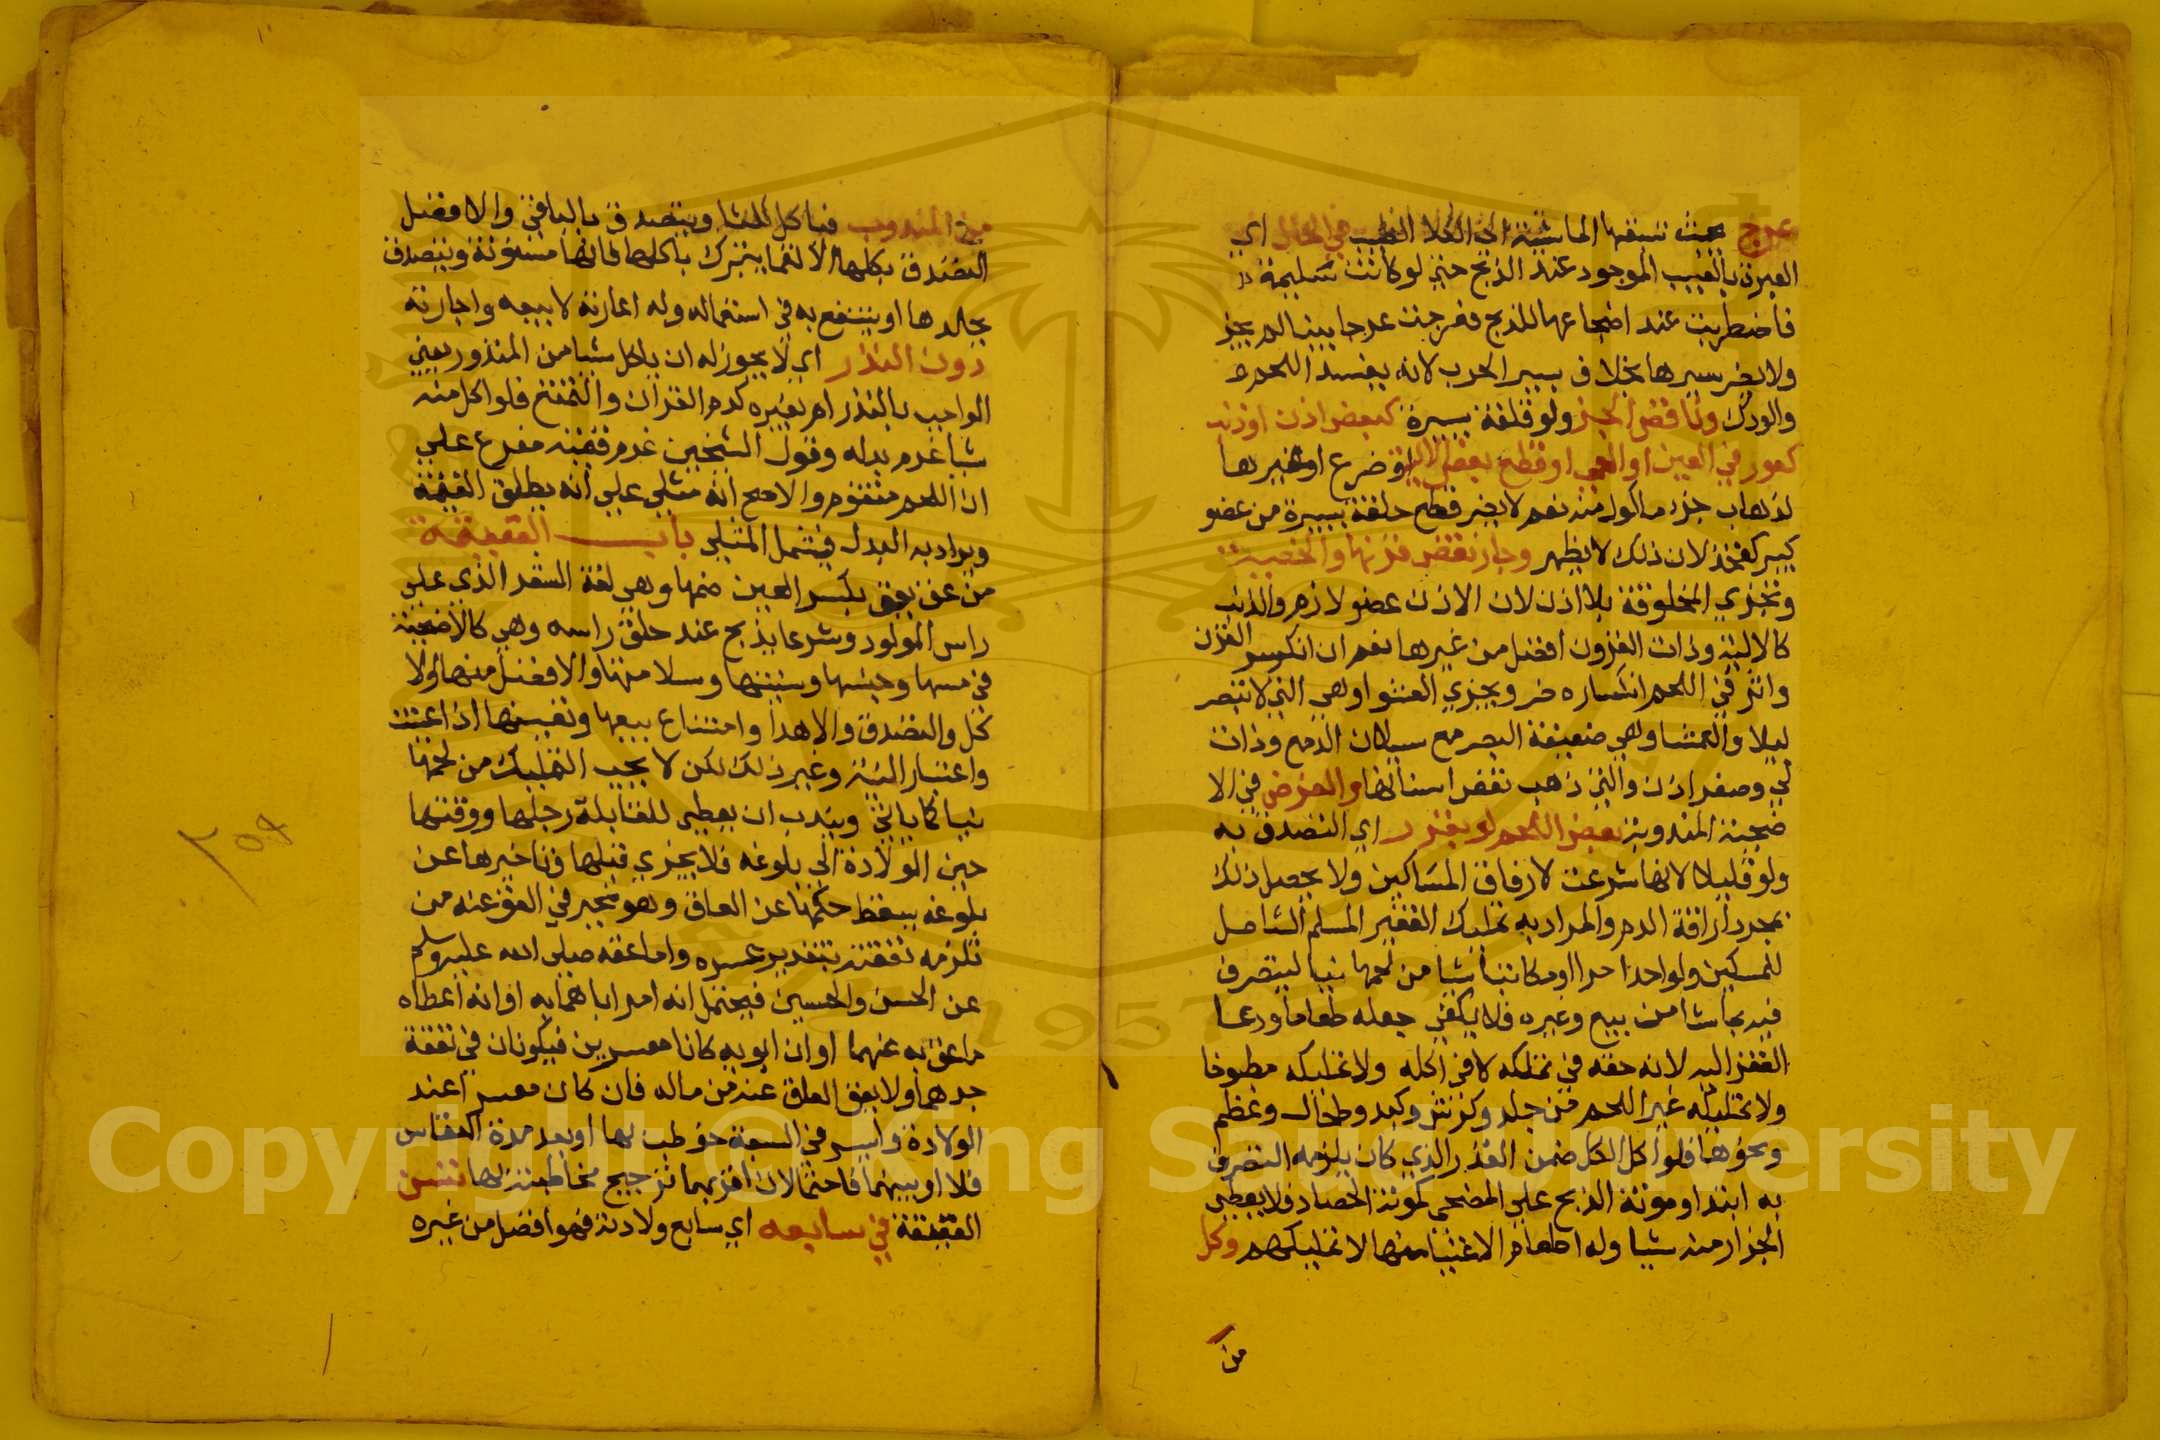 عرج بحيث تسبقها الماشية الى الكلا الطيب في الحال اي
العبرة بالعيب الموجود عند الذبح حتى لو كانت سليمة
فاضطربت عند اضجاعها للذبح فعرجت عرجا بينا لم يجز
ولا يضر يسيرها بخلاف يسير الجرب لانه يفسد اللحم
والودك وناقص الجز ولو فلقة يسيرة كبعض اذن او ذنب
كعور في العين او العمى او قطع بعض الالية او ضرع او غيرها
لذهاب جزء ماكول منه نعم لا يضر قطع حلقة يسيرة من عضو
كبير كفخذ لان ذلك لا يظهر وجاز نقص قرنها والخصية
وتجزي المخلوقة بلا اذن لان الاذن عضو لازم والذنب
كالالية وذات القرون افضل من غيرها نعم ان انكسر القرن
واثر في اللحم انكساره ضر ويجزي العشوا وهي التي لا تبصر
ليلا والعمشا وهي ضعيفة البصر مع سيلان الدمع وذات
كي وصغر اذن والتي ذهب بعض اسنانها والفرض في الا
ضحية المندوبة بعض اللحم لو بنزر اي التصدق به
ولو قليلا لانها شرعت لارفاق المساكين ولا يحصل ذلك
بمجرد اراقة الدم والمراد به تمليك الفقير المسلم الشامل
للمسكين ولو واحدا حرا او مكاتبا شيا من لحمها نيا ليتصرف
فيه بما شا من بيع وغيره فلا يكفي جعله طعاما ودعا
الفقر اليه لانه حقه في تملكه لا في اكله ولا تمليكه مطبوخا
ولا تمليكه غير اللحم من جلد وكرش وكبد وطحال وعظم
ونحوها فلو اكل الكل ضمن القدر الذي كان يلزمه التصرف
به ابتدا ومونة الذبح على المضحي كمونة الحصاد فلا يعطى
الجزار منه شيا وله اطعام الاغنيا منها لا تمليكهم وكل
من
من المندوب فياكل الثلث ويتصدق بالباقي والافضل
التصدق بكلها الا لقما يتبرك باكلها فانها مسنونة ويتصدق
بجلدها او ينتفع به في استعماله وله اعارته لا بيعه واجارته
دون النذر اي لا يجوز له ان ياكل شيا من المنذور يعني
الواجب بالنذر ام بغيره كدم القران والتمتع فلو اكل منه
شيا غرم بدله وقول الشيخين غرم قيمته مفرع على
ان اللحم متقوم والاصح انه مثلي على انه يطلق القيمة
ويراد به البدل فيشمل المثلي باب العقيقة
من عق يعق بكسر العين ضمها وهي لغة الشعر الذي على
راس المولود وشرعا يذبح عند حلق راسه وهي كالاضحية
في سنها وجنسها وسنيتها وسلامتها والافضل منها والا
كل والتصدق والاهدا وامتناع بيعها وتعيينها اذا عينت
واعتبار النية وغير ذلك لكن لا يجب التمليك من لحمها
نيا كما ياتي ويندب ان يعطى للقابلة رجلها ووقتها
حين الولادة الى بلوغه فلا يجزي قبلها وتاخيرها عن
بلوغه يسقط حكمها عن العاق وهو مخير في العق عنه من
تلزمه نفقته بتقدير عسره واما عقه صلى الله عليه وسلم
عن الحسن والحسين فيحتمل انه امر اباهما به او انه اعطاه
ما عق به عنهما او ان ابويه كانا معسرين فيكونان في نفقة
جدهما ولا يعق العاق عنه من ماله فان كان معسرا عند
الولادة وايسر في السبعة خوطب بها او بعد مدة النفاس
فلا او بينهما فاحتمالان اقربهما ترجيح مخاطبته بها تسن
العقيقة في سابعه اي سابع ولادته فهو افضل من غيره
٢٥٩
Copyright © King Saud University
1957